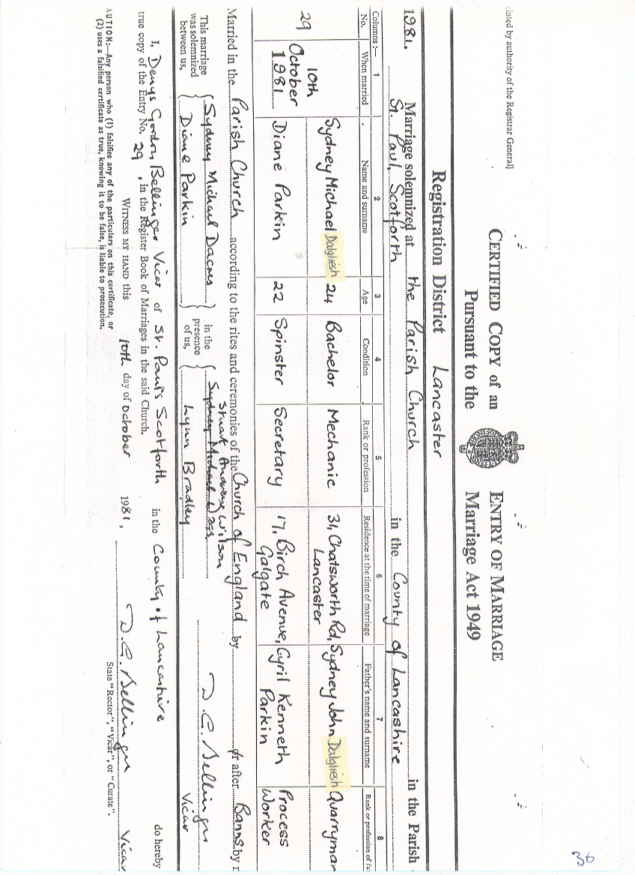 36
isted by authority of the Registrar General)
CERTIFIED COPY of an ENTRY OF MARRIAGE
Pursuant to the Marriage Act 1949
Registration District Lancaster
1981. Marriage solemnized at the Parish Church in the Parish
St. Paul, Scotforth in the County of Lancashire
Columns :— 1 2 3 4 5 6 7 8
No. When married Name and surname Age Condition Rank or profession Residence at the time of marriage Father's name and surname Rank or profession of fa
29 10th October 1981 Sydney Michael Dalgliesh 24 Bachelor Mechanic 31, Chatsworth Rd, Lancaster Sydney John Dalgliesh Quarryman
Diane Parkin 22 Spinster Secretary 17, Birch Avenue, Galgate Cyril Kenneth Parkin Process Worker
Married in the Parish Church according to the rites and ceremonies of the Church of England by or after Banns by
This marriage was solemnized between us, Sydney Michael Dacres Diane Parkin in the presence of us, Stuart Wilson Sydney Michael Lynn Bradley D. C. Bellinger Vicar
I, Denys Gordon Bellinger Vicar of St. Paul's Scotforth in the County of Lancashire do hereby
true copy of the Entry No. 29, in the Register Book of Marriages in the said Church.
WITNESS MY HAND this 10th day of October 1981, D. C. Bellinger Vicar
State "Rector", "Vicar", or "Curate".
AUTION:—Any person who (1) falsifies any of the particulars on this certificate, or
(2) uses a falsified certificate as true, knowing it to be false, is liable to prosecution.